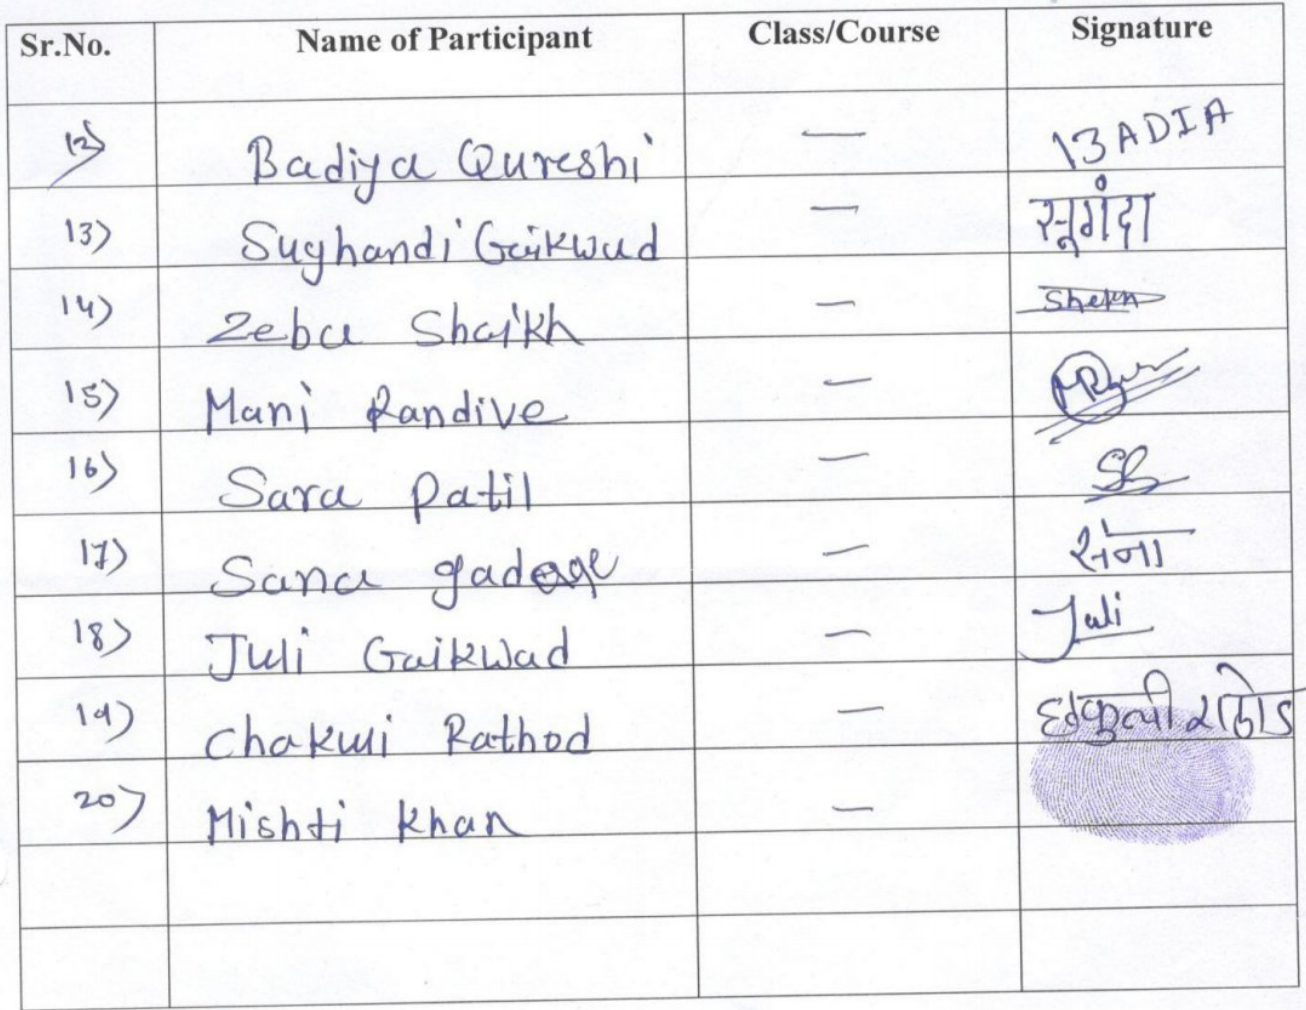 Sr.No. Name of Participant Class/Course Signature
12) Badiya Qureshi — 13ADIA
13) Sughandi Gaikwad — सूगंदा
14) Zeba Shaikh —
15) Mani Randive —
16) Sara Patil —
17) Sana —
18) Juli Gaikwad — Juli
19) Chakuli Rathod —
20) Mishti Khan —